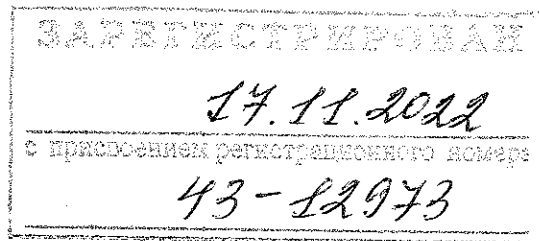 ЗАРЕГИСТРИРОВАН
17.11.2022
с присвоением регистрационного номера
43-12973